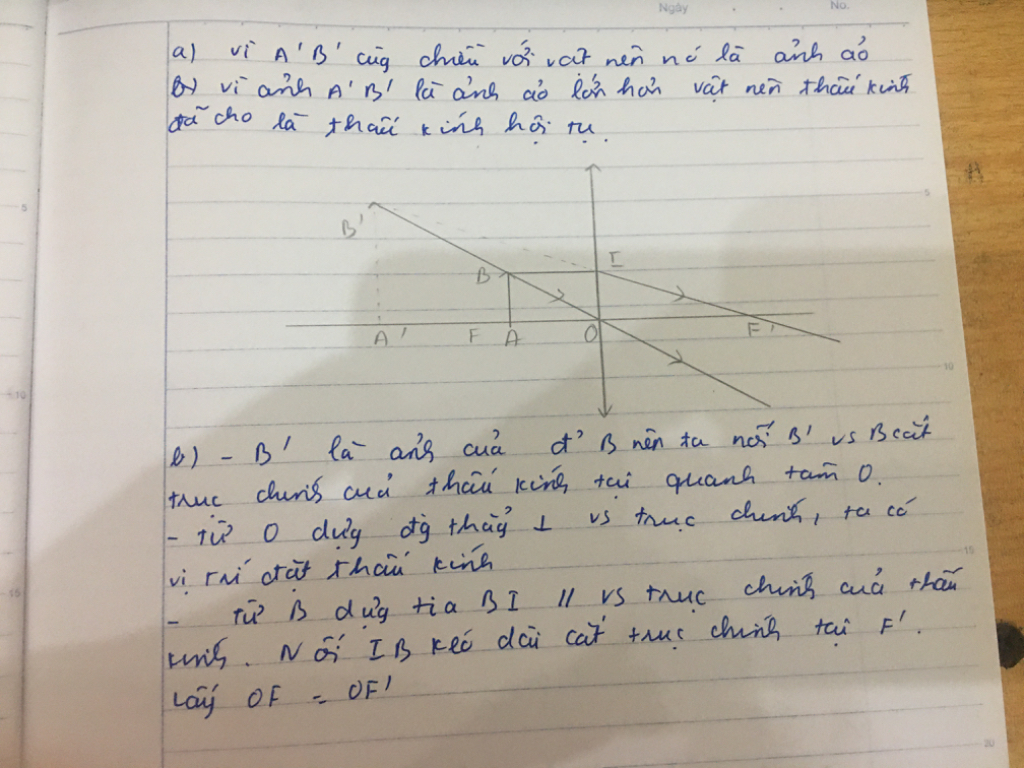 Ngày . . No.
a) vì A'B' cùg chiều với vật nên nó là ảnh ảo
b) vì ảnh A'B' là ảnh ảo lớn hơn vật nên thấu kính
đã cho là thấu kính hội tụ.
5
B'
I
B
A' F A O F'
10
b) - B' là ảnh của đ' B nên ta nối B' vs B cắt
trục chính của thấu kính tại quanh tâm O.
- từ O dựg đg thẳg ⊥ vs trục chính, ta có
vị trí đặt thấu kính
15
- từ B dựg tia BI // vs trục chính của thấu
kính. Nối IB kéo dài cắt trục chính tại F'.
Lấy OF = OF'
20
5
10
15